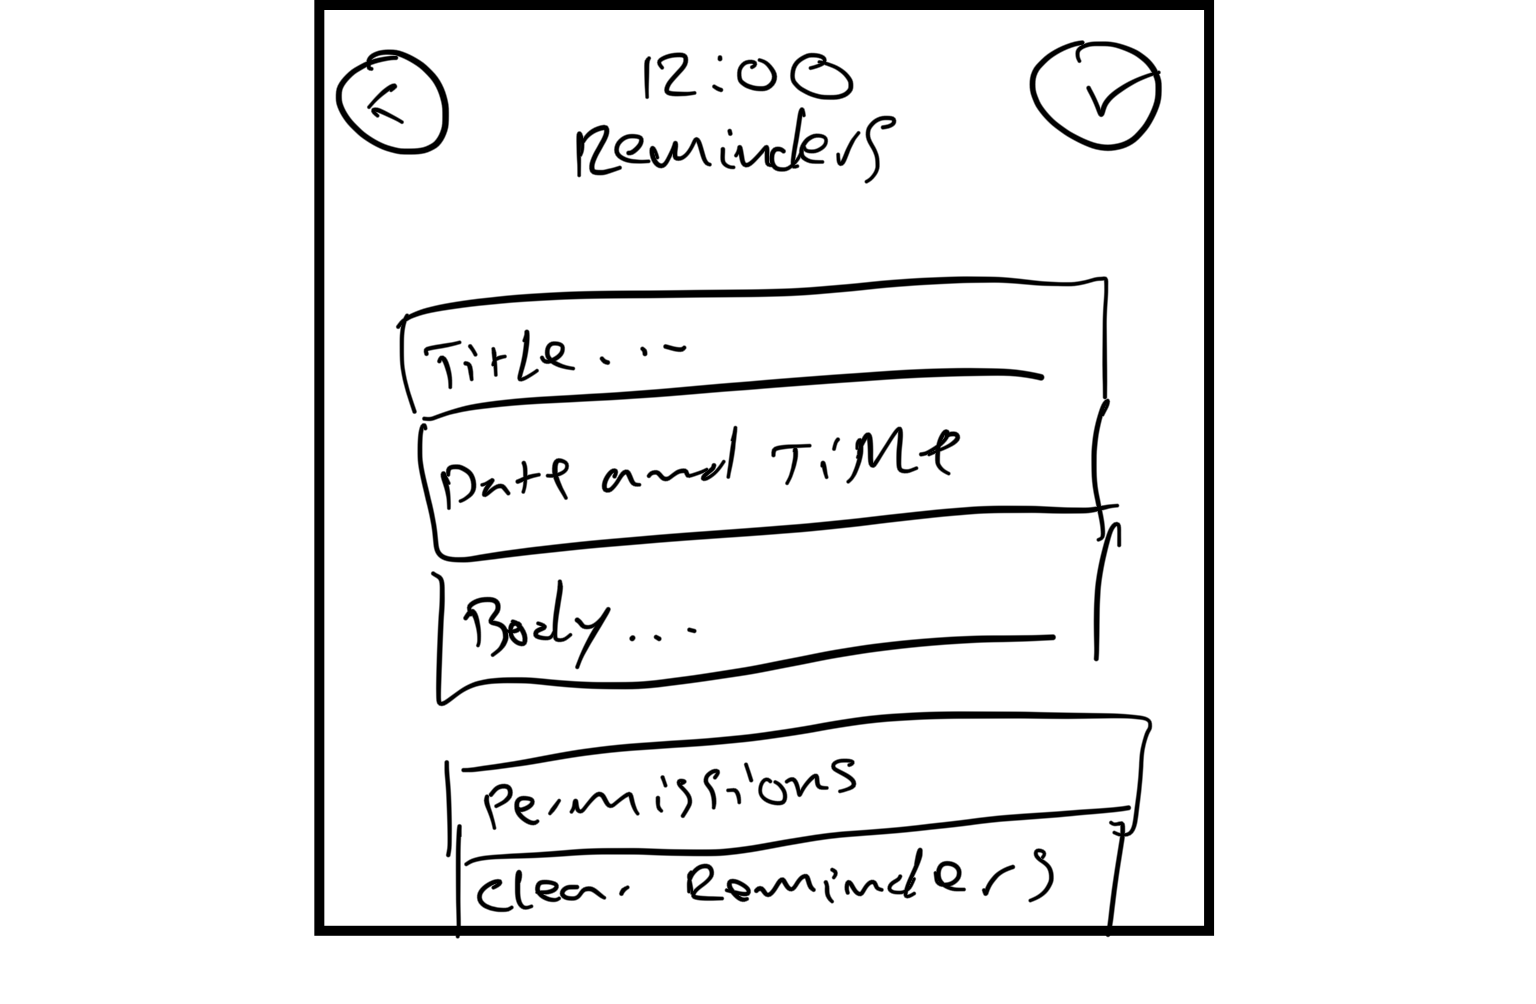 <
12:00
✓
Reminders
Title...
Date and Time
Body...
Permissions
Clear Reminders